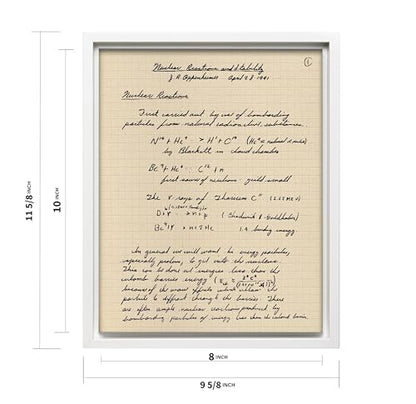 Nuclear Reactions and Stability
J. R. Oppenheimer April 28 1941
1
Nuclear Reactions
First carried out by use of bombarding
particles from natural radioactive substances.
N¹⁴ + He⁴ → H¹ + C¹⁷ (He⁴ = natural α rays)
by Blackett in cloud chamber
Be⁹ + He⁴ C¹² + n
first source of neutrons: yield small
The γ rays of Thorium C"
D + γ → n + p (Chadwick & Goldhaber)
Be⁹
binding energy
In general we will want the energy particles,
especially protons, to get into the
This can be done at energies less than the
coulomb barrier energy
because of the wave effects which allow the
particle to diffract through the barrier. There
are often ample nuclear reactions produced by
bombarding particles of energy less than the coulomb barrier.
11 5/8 INCH
10 INCH
8 INCH
9 5/8 INCH